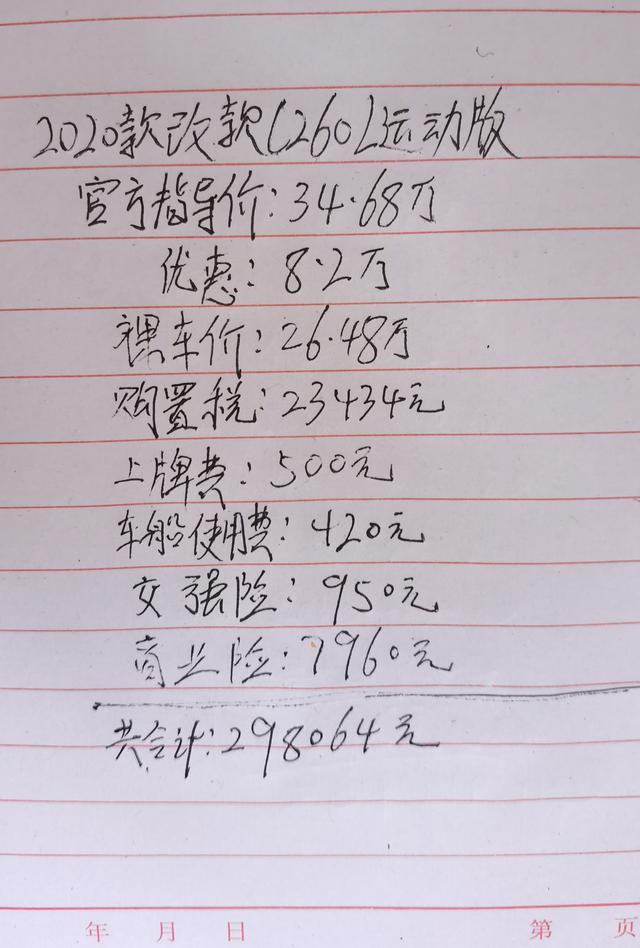 2020款改款C260L运动版
官方指导价：34.68万
优惠：8.2万
裸车价：26.48万
购置税：23434元
上牌费：500元
车船使用费：420元
交强险：950元
商业险：7960元
共合计：298064元
年 月 日 第 页